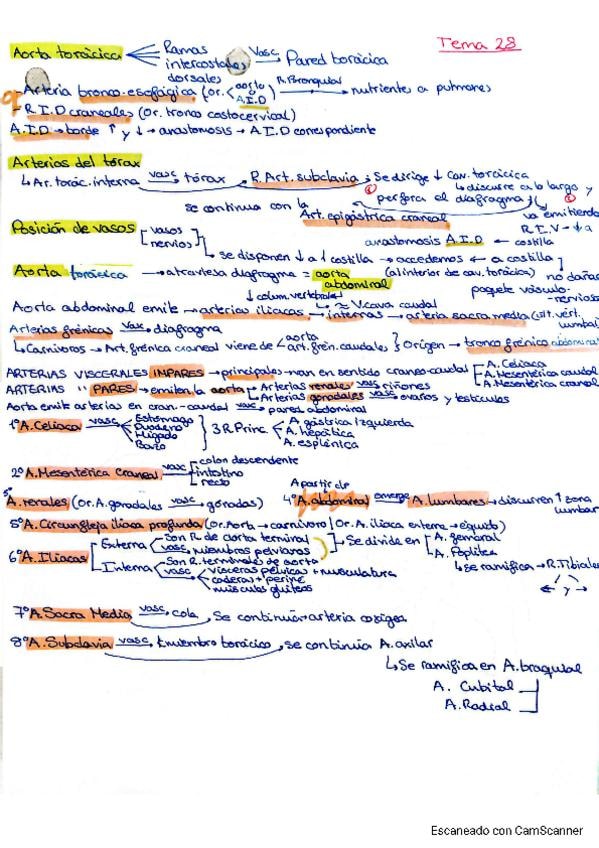 Tema 28
Aorta torácica Ramas intercostales dorsales vasc Pared torácica
- Arteria bronco-esofágica (Or. aorta A.I.D) R. Bronquial nutrientes a pulmones
- R.I.D craneales (Or. tronco costocervical)
A.I.D → borde ↑ y ↓ → anastomosis → A.I.D correspondiente
Arterias del tórax
↳ Ar. torác. interna vasc tórax, R. Art. subclavia; Se dirige ↓ cav. torácica
↳ discurre a lo largo y perfora el diafragma
se continua con la Art. epigástrica craneal
va emitiendo R.I.V → ↓ a costilla
anastomosis A.I.D ←
Posición de vasos vasos nervios
↳ se disponen ↓ a l costilla → accedemos ← a costilla
(al interior de cav. torácica) no dañas paquete vásculo-nervioso
Aorta torácica → atraviesa diafragma = aorta abdominal
↓ column. vertebral ↳ ≈ V. cava caudal
Aorta abdominal emite → arterias ilíacas → internas → arteria sacra media (sit. vért. lumbar)
Arterias frénicas vasc diafragma
↳ Carnívoros → Art. frénica craneal viene de aorta art. frén. caudales } Origen → tronco frénico abdominal
ARTERIAS VISCERALES IMPARES → principales → van en sentido craneo-caudal A. Celíaca A. Mesentérica caudal A. Mesentérica craneal
ARTERIAS " PARES → emiten la aorta Arterias renales vasc riñones
Arterias gonadales vasc ovarios y testículos
Aorta emite arterias en cran-caudal vasc pared abdominal
1º A. Celíaca vasc Estómago Duodeno Hígado Bazo } 3 R. Princ A. gástrica izquierda A. hepática A. esplénica
2º A. Mesentérica craneal vasc colon descendente intestino recto
3º A. renales (Or. A. gonadales vasc gónadas)
A partir de
4º A. abdominal emerge A. lumbares → discurren ↑ zona lumbar
5º A. Circunfleja ilíaca profunda (Or. Aorta → carnívoro / Or. A. ilíaca externa → équido)
6º A. Ilíacas Externa Son R. de aorta terminal vasc miembros pelvianos } Se divide en A. femoral A. Poplítea
↳ Se ramifica → R. Tibiales ← y →
Interna Son R. terminales de aorta vasc vísceras pélvicas + musculatura caderas + periné músculos glúteos
7º A. Sacra Media vasc, cola, Se continúa → arteria coxígea
8º A. Subclavia vasc, Exmiembro torácico, se continúa A. axilar
↳ Se ramifica en A. braquial
A. Cubital
A. Radial
Escaneado con CamScanner